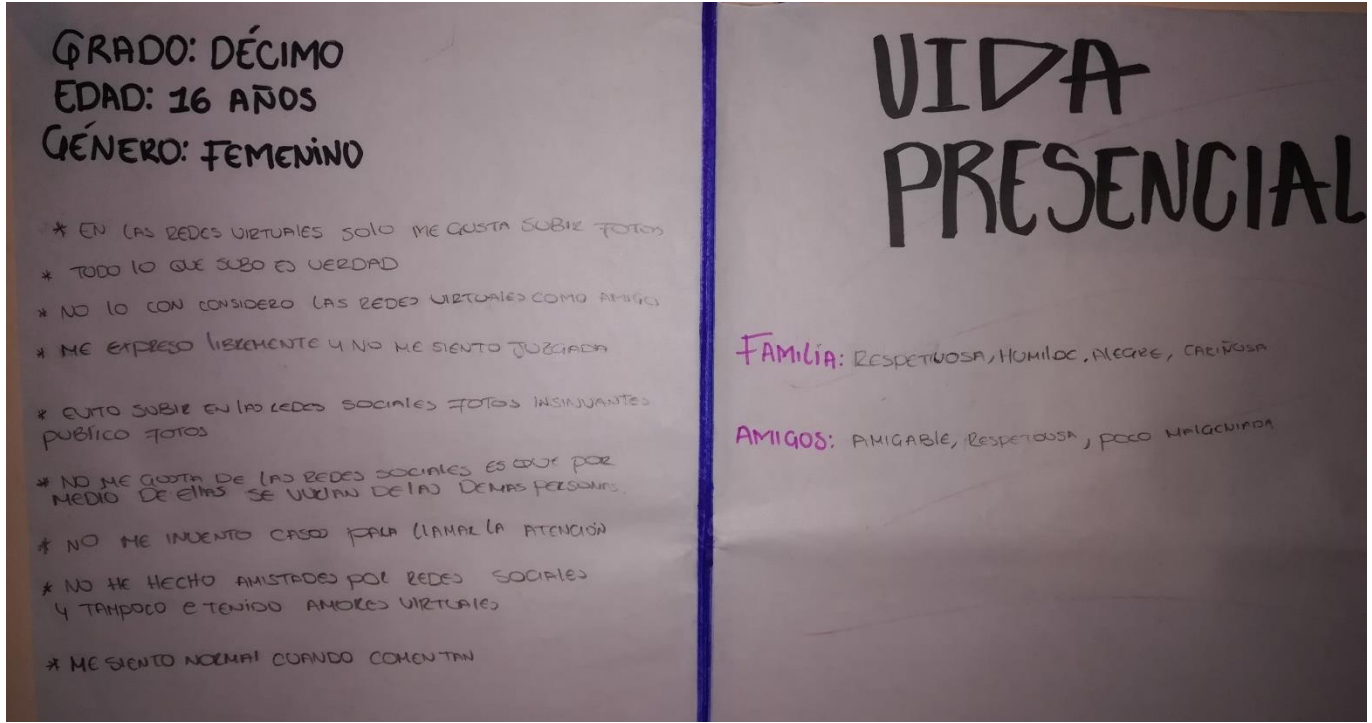 GRADO: DÉCIMO
EDAD: 16 AÑOS
GÉNERO: FEMENINO
* EN LAS REDES VIRTUALES SOLO ME GUSTA SUBIR FOTOS
* TODO LO QUE SUBO ES VERDAD
* NO LO CON CONSIDERO LAS REDES VIRTUALES COMO AMIGOS
* ME EXPRESO LIBREMENTE Y NO ME SIENTO JUZGADA
* EVITO SUBIR EN LAS REDES SOCIALES FOTOS INSINUANTES
PUBLICO FOTOS
* NO ME GUSTA DE LAS REDES SOCIALES ES QUE POR
MEDIO DE ELLAS SE DE LAS DEMAS PERSONAS.
* NO ME INVENTO CASOS PARA LLAMAR LA ATENCIÓN
* NO HE HECHO AMISTADES POR REDES SOCIALES
Y TAMPOCO E TENIDO AMORES VIRTUALES
* ME SIENTO NORMAL CUANDO COMENTAN
VIDA
PRESENCIAL
FAMILIA: RESPETUOSA, HUMILDE, ALEGRE, CARIÑOSA
AMIGOS: AMIGABLE, RESPETOUSA, POCO MALGENIADA